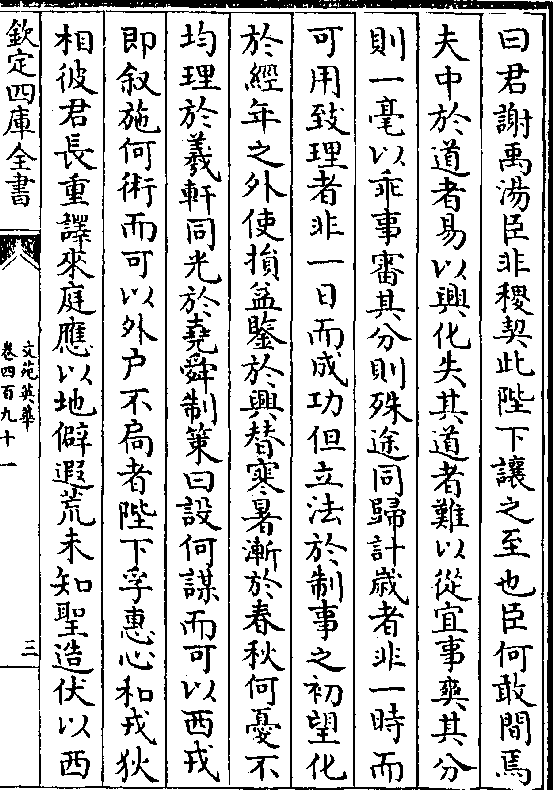 曰君謝禹湯臣非稷契此陛下讓之至也臣何敢間焉
夫中於道者易以興化失其道者難以從宜事爽其分
則一毫以乖事審其分則殊途同歸計嵗者非一時而
可用致理者非一日而成功但立法於制事之初望化
於經年之外使損益鑒於興替寒暑漸於春秋何憂不
均理於羲軒同光於堯舜制策曰設何謀而可以西戎
即叙施何術而可以外户不扄者陛下孚惠心和戎狄
相彼君長重譯來庭應以地僻遐荒未知聖造伏以西
欽定四庫全書
文苑英華
卷四百九十一
三